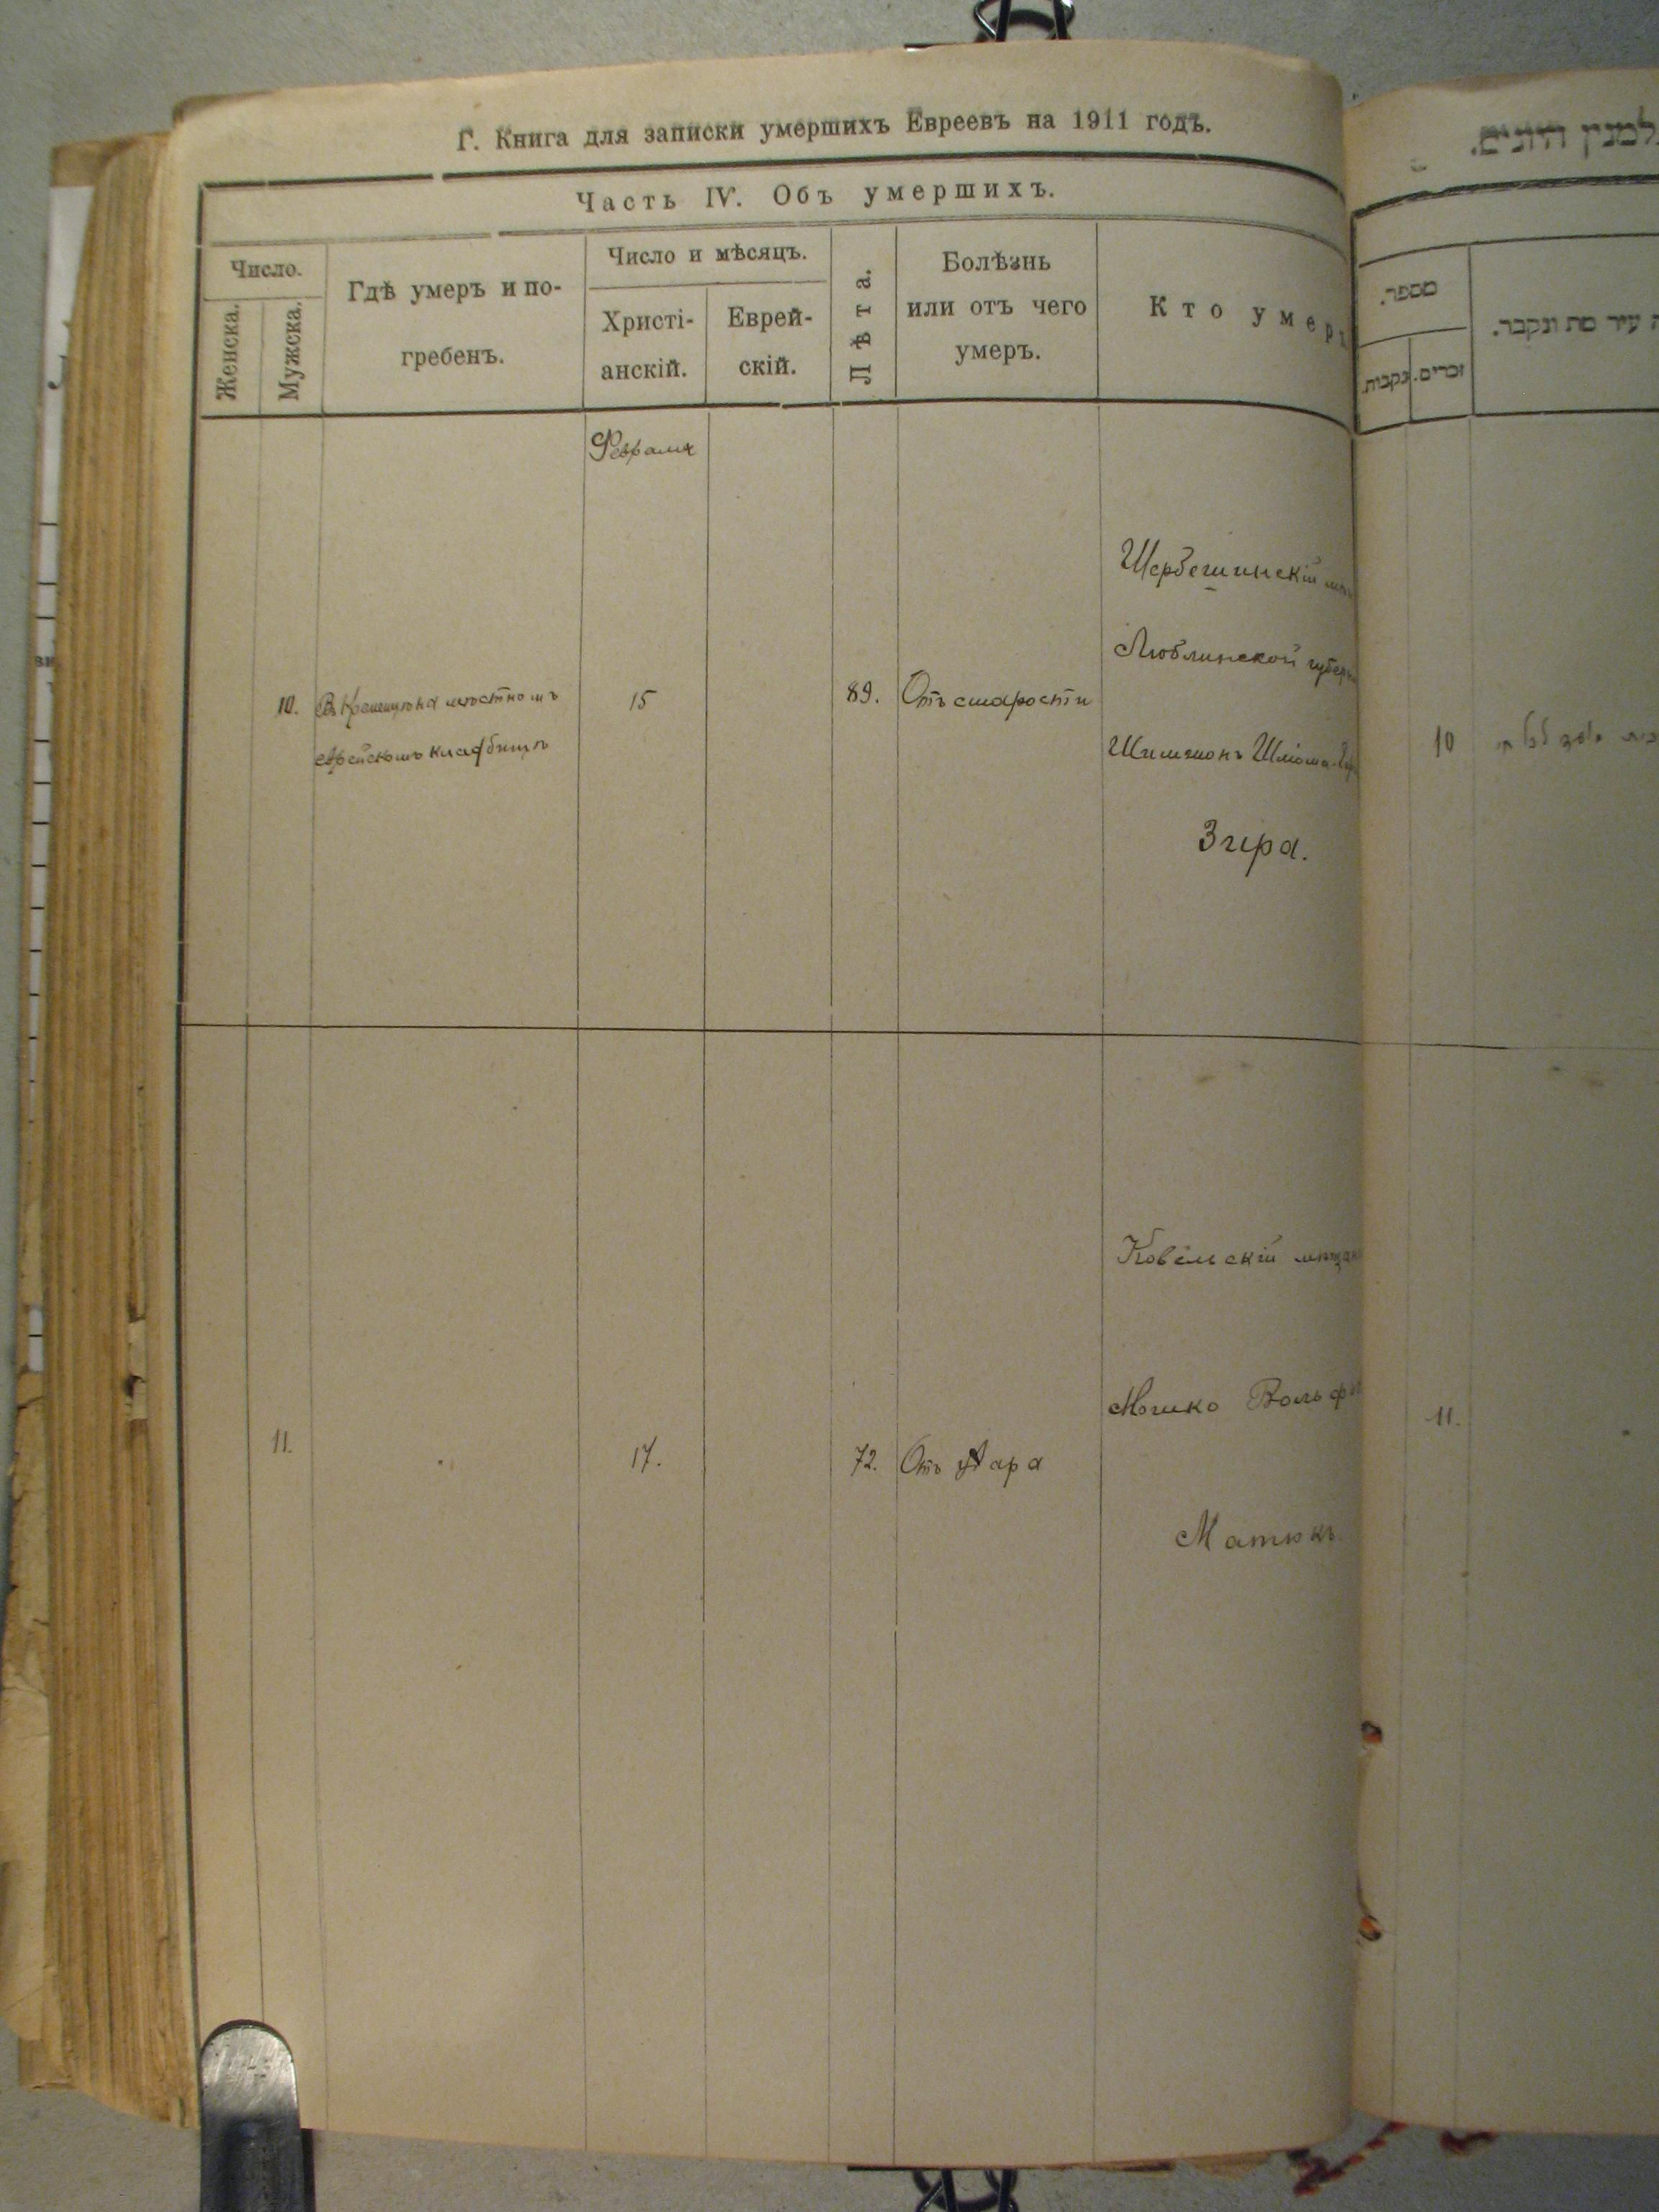 Г. Книга для записки умершихъ Евреевъ на 1911 годъ.
Часть IV. Объ умершихъ.
Число.
Женска.
Мужска.
Гдѣ умеръ и по-
гребенъ.
Число и мѣсяцъ.
Христі-
анскій.
Еврей-
скій.
Лѣта.
Болѣзнь
или отъ чего
умеръ.
Кто умеръ
Февраля
10.
мѣстномъ
еврейскомъ кладбищѣ
15
89.
Отъ старости
Щербешинскій
Люблинской
Шлiома
Згера.
11.
17.
72.
Отъ
Ковельскій мѣщан
Мошко Вольф
Матюкъ.
למנין היונים.
מספר.
נקבות
זכרים.
עיר מת ונקבר.
10
11.